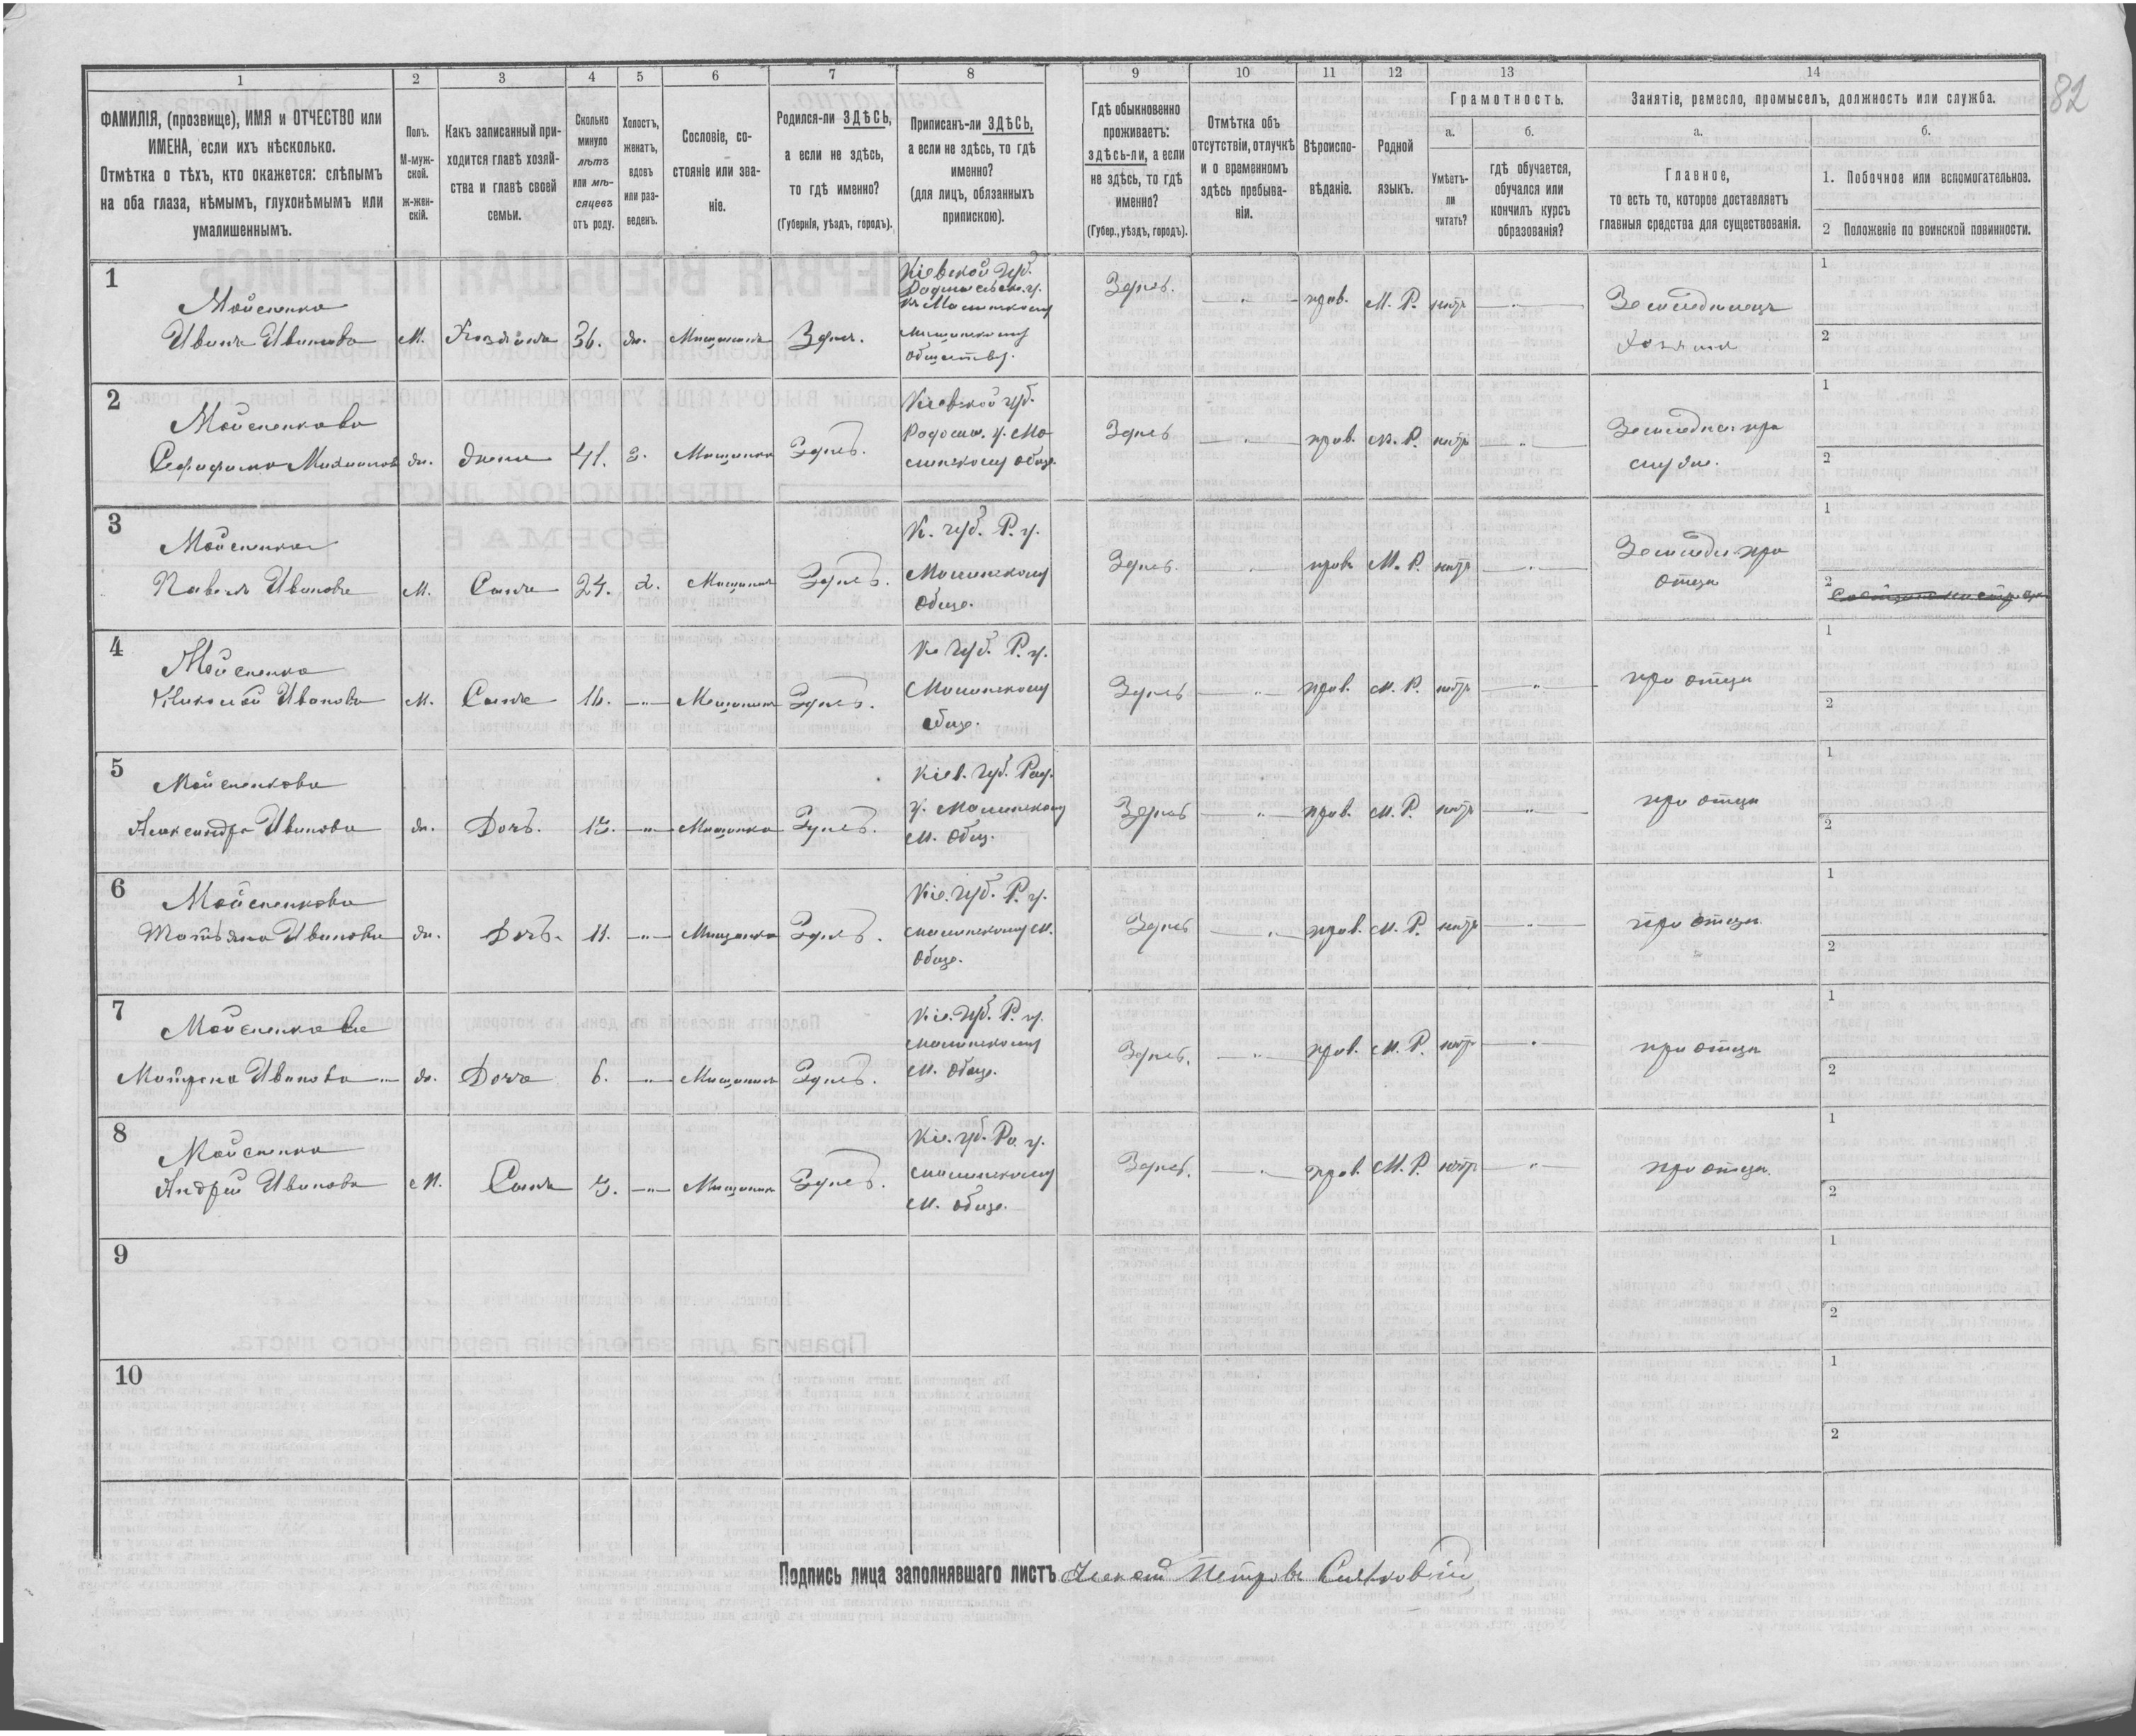 82
1
2
3
4
5
6
7
8
9
10
11
12
13
14
ФАМИЛІЯ, (прозвище), ИМЯ и ОТЧЕСТВО или
ИМЕНА, если ихъ нѣсколько.
Отмѣтка о тѣхъ, кто окажется: слѣпымъ
на оба глаза, нѣмымъ, глухонѣмымъ или
умалишеннымъ.
Полъ.
М-муж-
ской.
Ж-жен-
скій.
Какъ записанный при-
ходится главѣ хозяй-
ства и главѣ своей
семьи.
Сколько
минуло
лѣтъ
или мѣ-
сяцевъ
отъ роду.
Холостъ,
женатъ,
вдовъ
или раз-
веденъ.
Сословіе, со-
стояніе или зва-
ніе.
Родился-ли ЗДѢСЬ,
а если не здѣсь,
то гдѣ именно?
(Губернія, уѣздъ, городъ).
Приписанъ-ли ЗДѢСЬ,
а если не здѣсь, то гдѣ
именно?
(для лицъ, обязанныхъ
припискою).
Гдѣ обыкновенно
проживаетъ:
здѣсь-ли, а если
не здѣсь, то гдѣ
именно?
(Губер., уѣздъ, городъ).
Отмѣтка объ
отсутствіи, отлучкѣ
и о временномъ
здѣсь пребыва-
ніи.
Вѣроиспо-
вѣданіе.
Родной
языкъ.
Грамотность.
а.
Умѣетъ-
ли
читать?
б.
гдѣ обучается,
обучался или
кончилъ курсъ
образованія?
Занятіе, ремесло, промыселъ, должность или служба.
а.
Главное,
то есть то, которое доставляетъ
главныя средства для существованія.
б.
1. Побочное или вспомогательное.
2 Положеніе по воинской повинности.
1
Мойсеенко
Иванъ Ивановъ М. Хозяинъ 36. ж. Мещанинъ Здѣсь.
Кіевской Губ.
мещанскому
обществу.
Здѣсь. — " — прав. М. Р. нѣтъ — " —
Земледелецъ
Хозяинъ
1
2
2
Мойсеенкова
ж. Жена 41. з. Мещанка Здѣсь.
Кіевской губ.
Радом. у. Ма
линскому общ.
Здѣсь — " — прав. М. Р. нѣтъ — " —
Земледел. при
мужѣ.
1
2
3
Мойсеенко
Павелъ Ивановъ М. Сынъ 24. х. Мещанин Здѣсь.
К. губ. Р. у.
Малинскому
Общ.
Здѣсь. — " — прав. М. Р. нѣтъ — " —
Земледел. при
отцѣ
1
2
4
Мойсеенко
Николай Ивановъ М. Сынъ 16. — " — Мещанин Здѣсь.
Ки Губ. Р. у.
Малинскому
общ.
Здѣсь — " — прав. М. Р. нѣтъ — " —
при отцѣ
1
2
5
Мойсеенкова
Александра Иванова ж. Дочь. 15. — " — Мещанка Здѣсь.
Кіев. Губ. Рад.
у. Малинскому
М. Общ.
Здѣсь — " — прав. М. Р. нѣтъ — " —
при отцѣ
1
2
6
Мойсеенкова
Татьяна Иванова ж. Дочь. 11. — " — Мещанка Здѣсь.
Кіе. Губ. Р. у.
Малинскому М.
Общ.
Здѣсь — " — прав. М. Р. нѣтъ — " —
при отцѣ
1
2
7
Мойсеенкова
Матрена Иванова ж. Дочь 6. — " — Мещанин Здѣсь.
Кіе. Губ. Р. у.
Малинскому
М. Общ.
Здѣсь. — " — прав. М. Р. нѣтъ — " —
при отцѣ
1
2
8
Мойсеенко
Андрей Ивановъ М. Сынъ 5. — " — Мещанин Здѣсь.
Кіе. губ. Ра. у.
Малинскому
М. общ.
Здѣсь. — " — прав. М. Р. нѣтъ — " —
при отцѣ
1
2
9
1
2
10
1
2
Подпись лица заполнявшаго листъ Алексѣй Петровъ